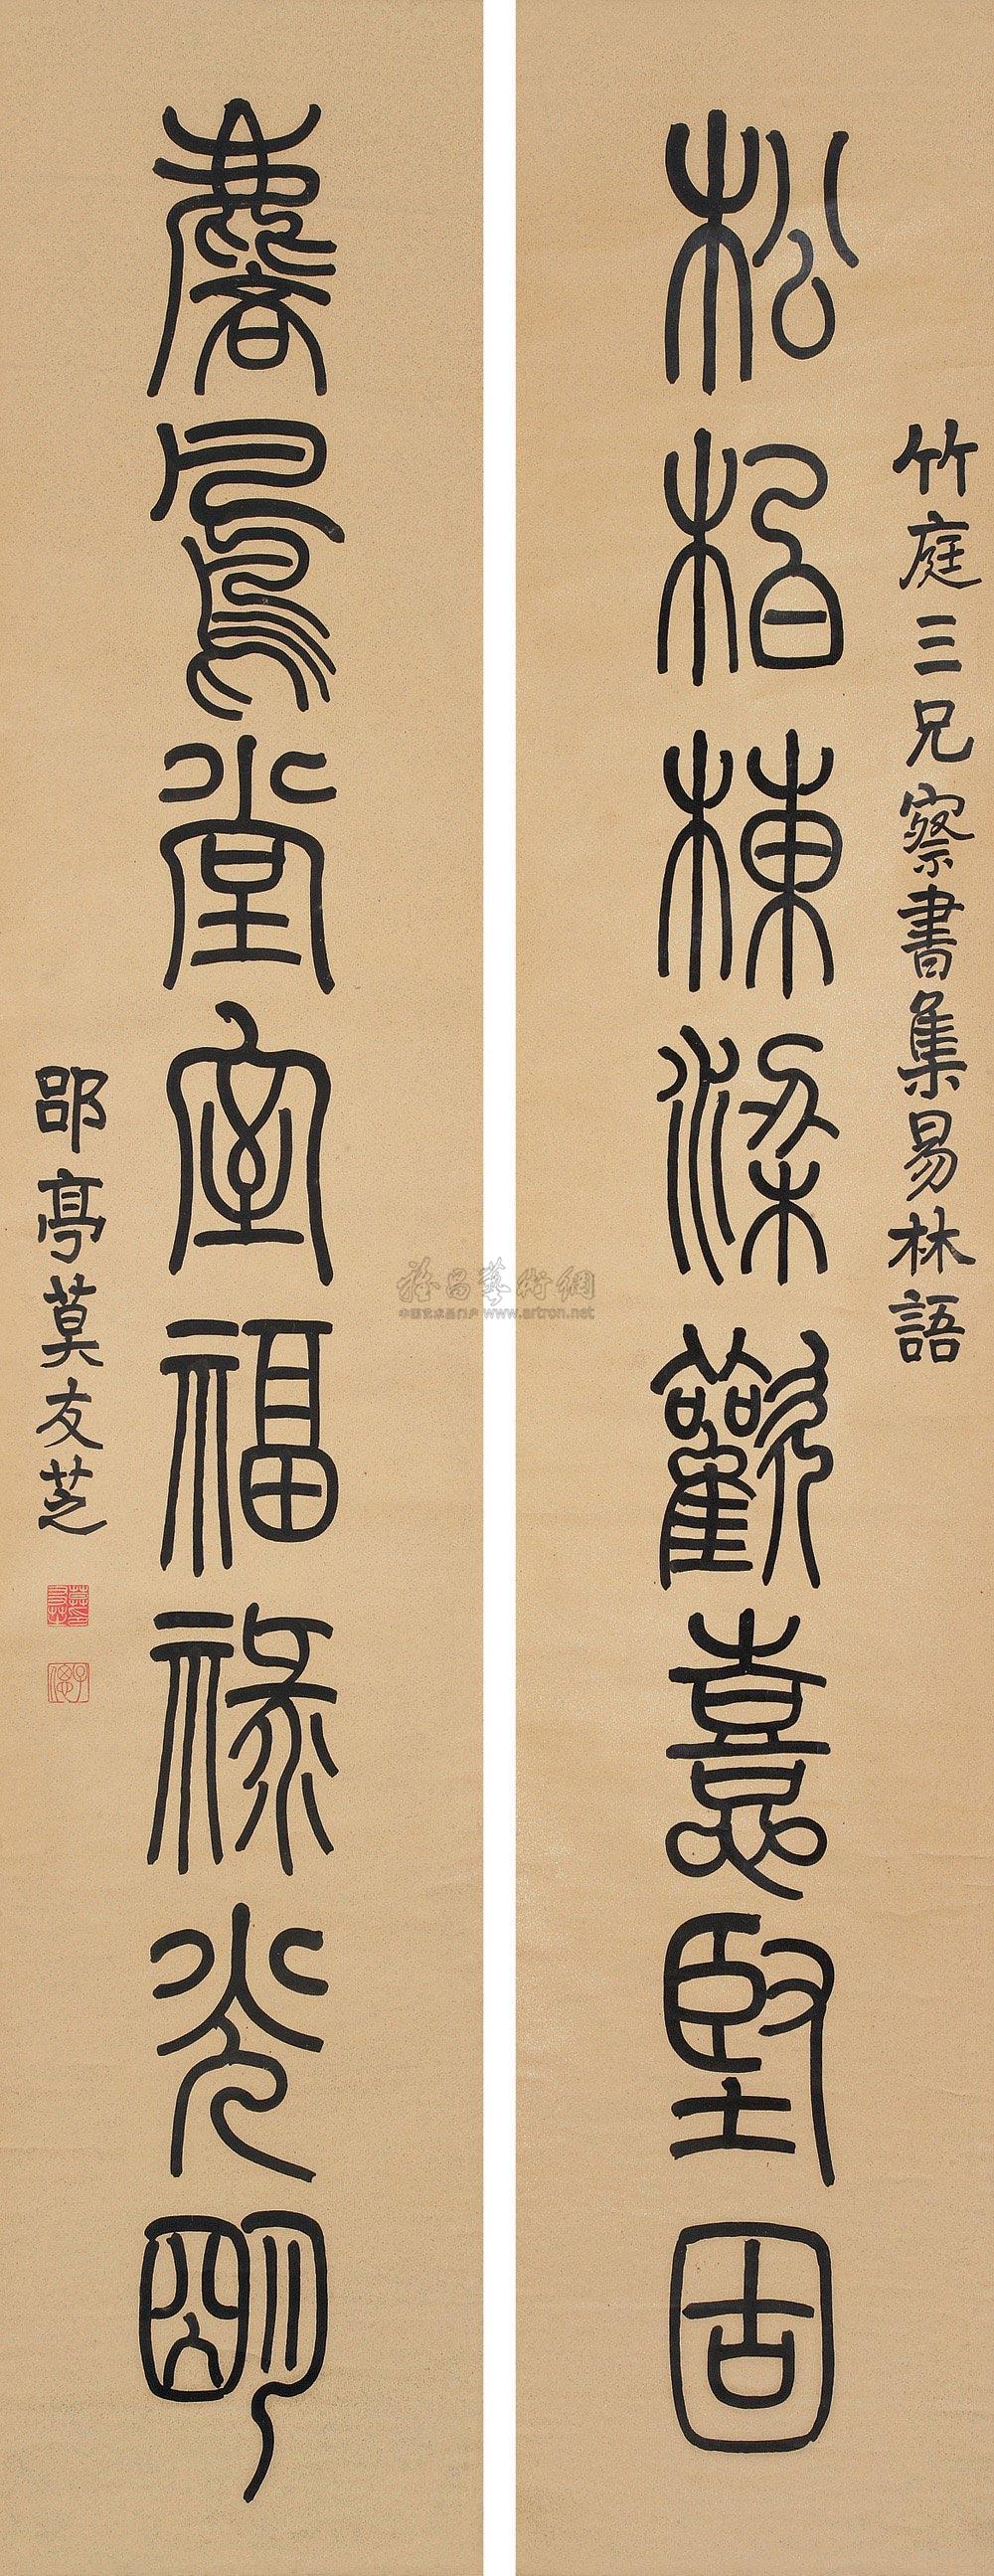 竹庭三兄察書集易林語
松柏棟梁歡憙堅固
麐鳳堂室福祿光朙
郘亭莫友芝
子偲
雅昌藝術網
中国艺术品门户 www.artron.net